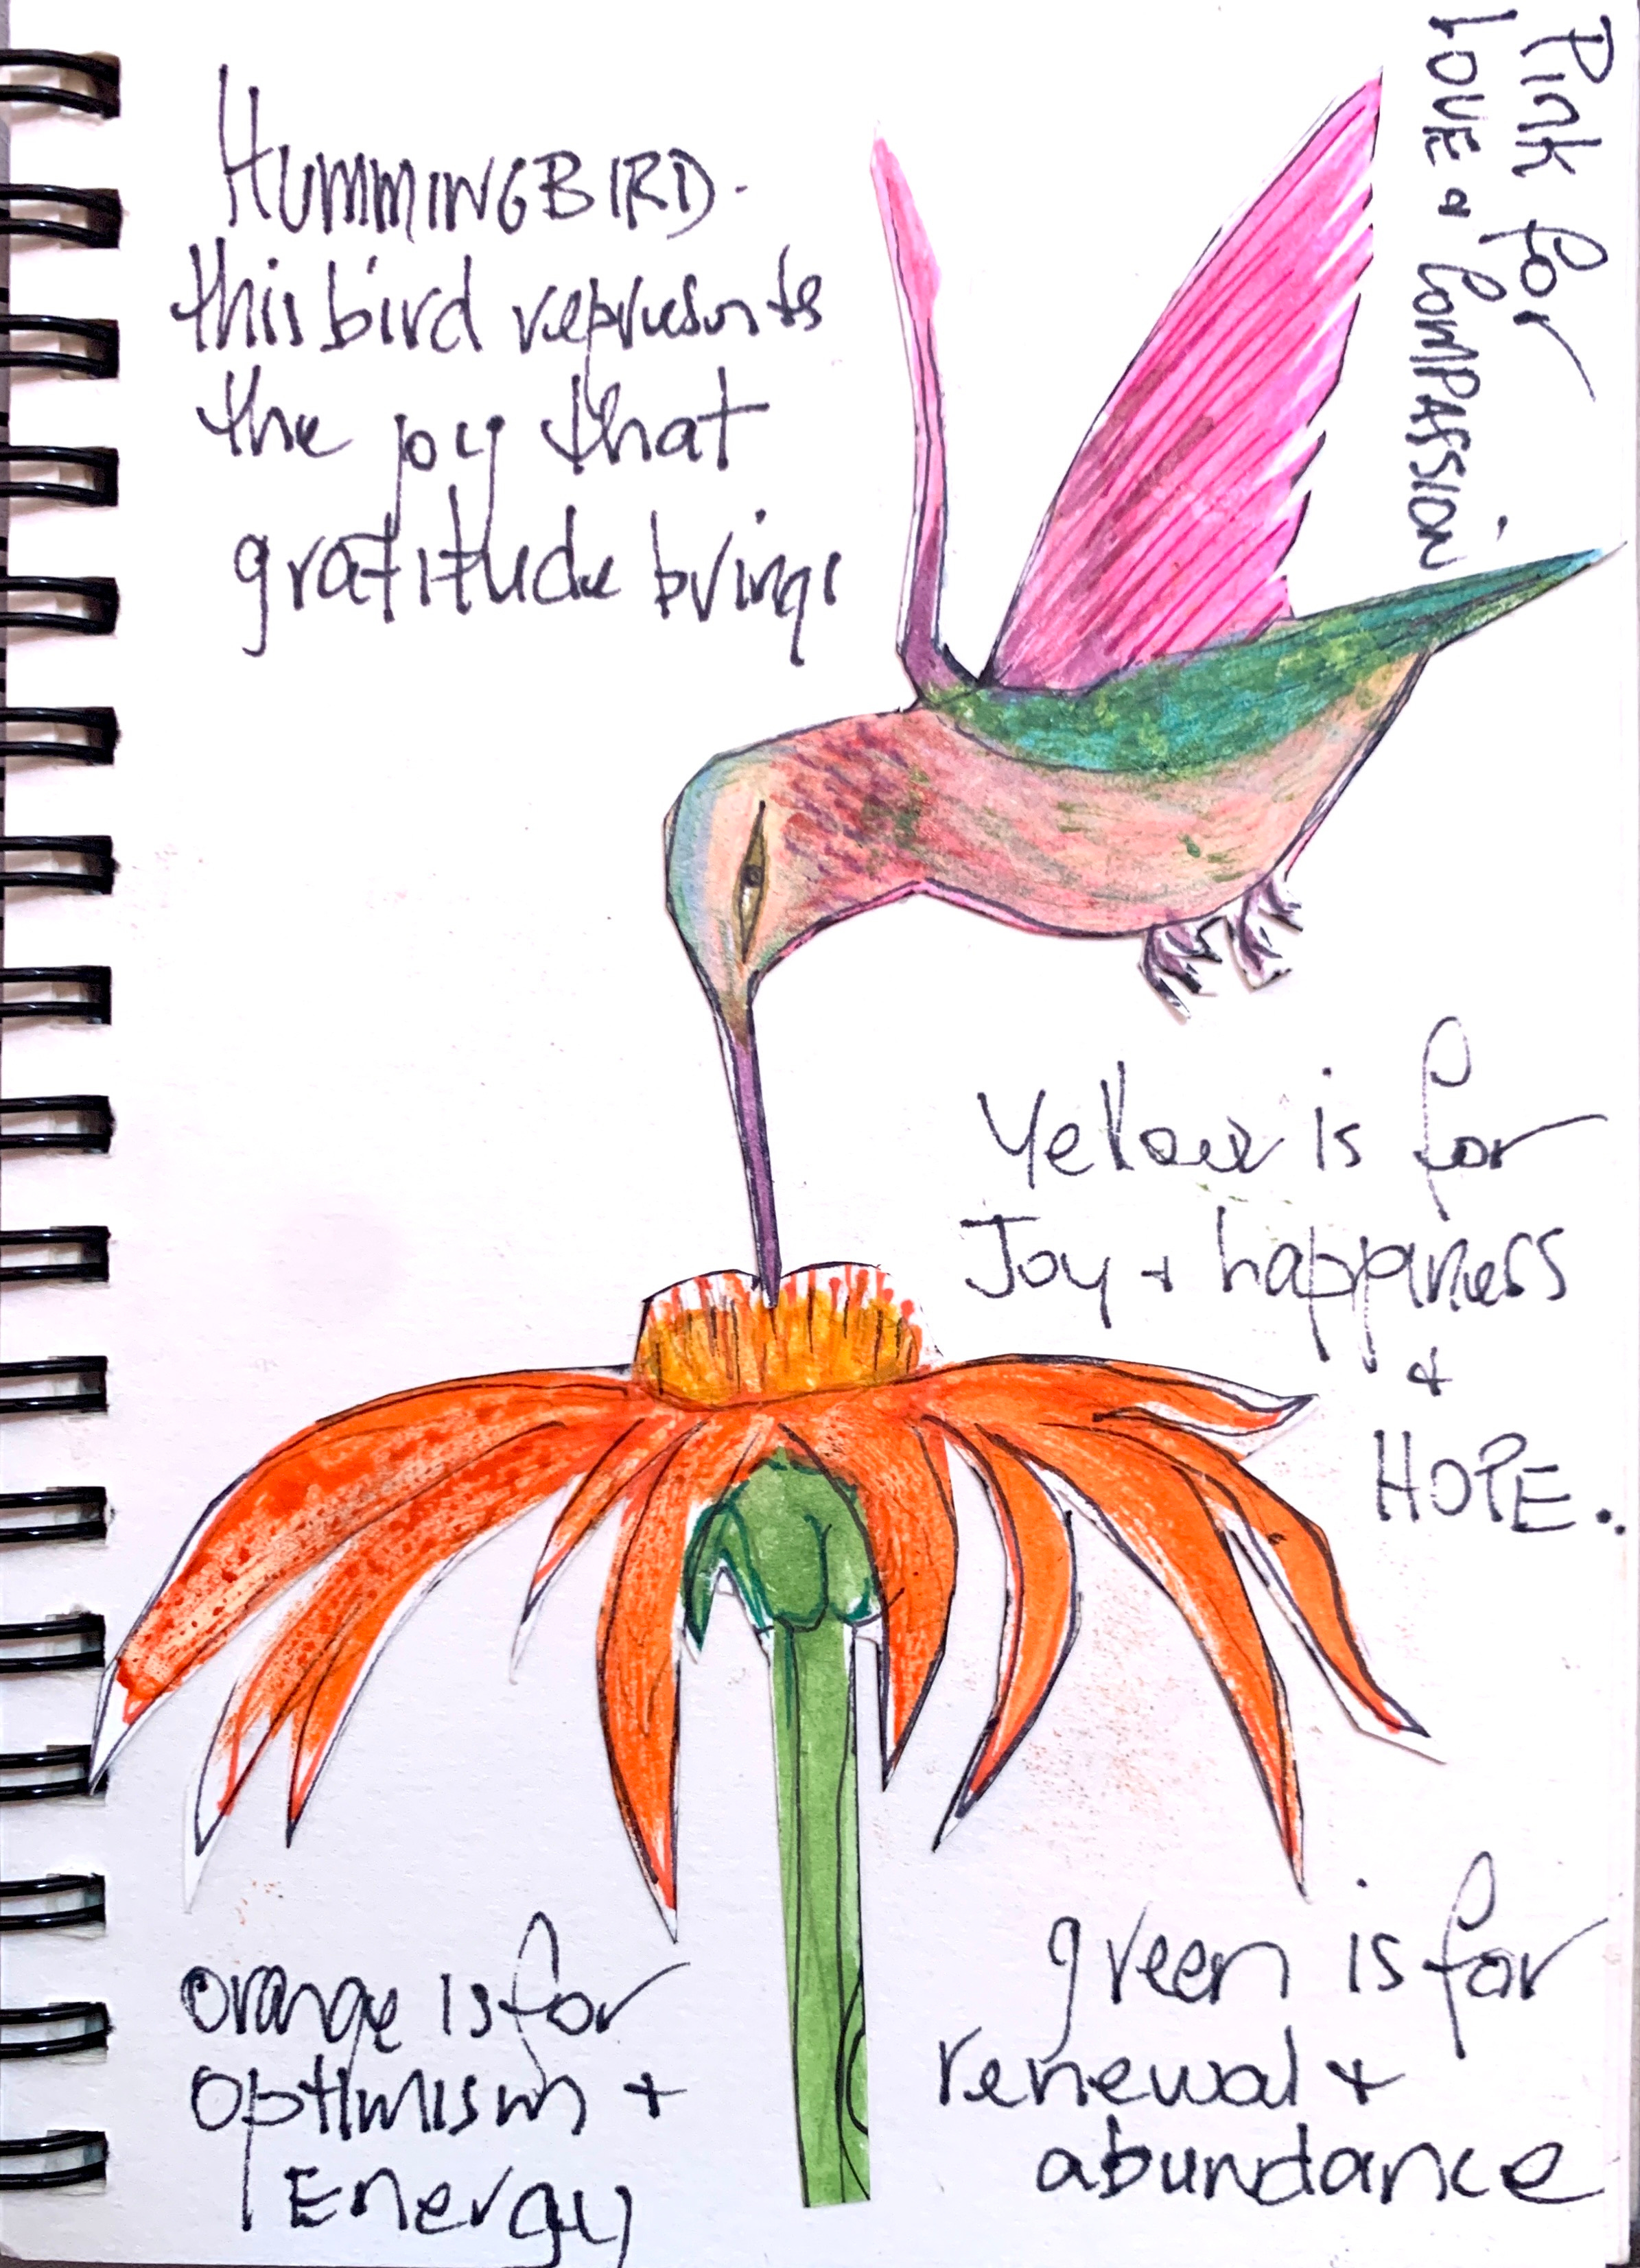 HUMMINGBIRD.
this bird represents
the joy that
gratitude brings
Pink for
LOVE & COMPASSION
Yellow is for
Joy + happiness
&
HOPE..
orange is for
optimism +
Energy
green is for
renewal +
abundance